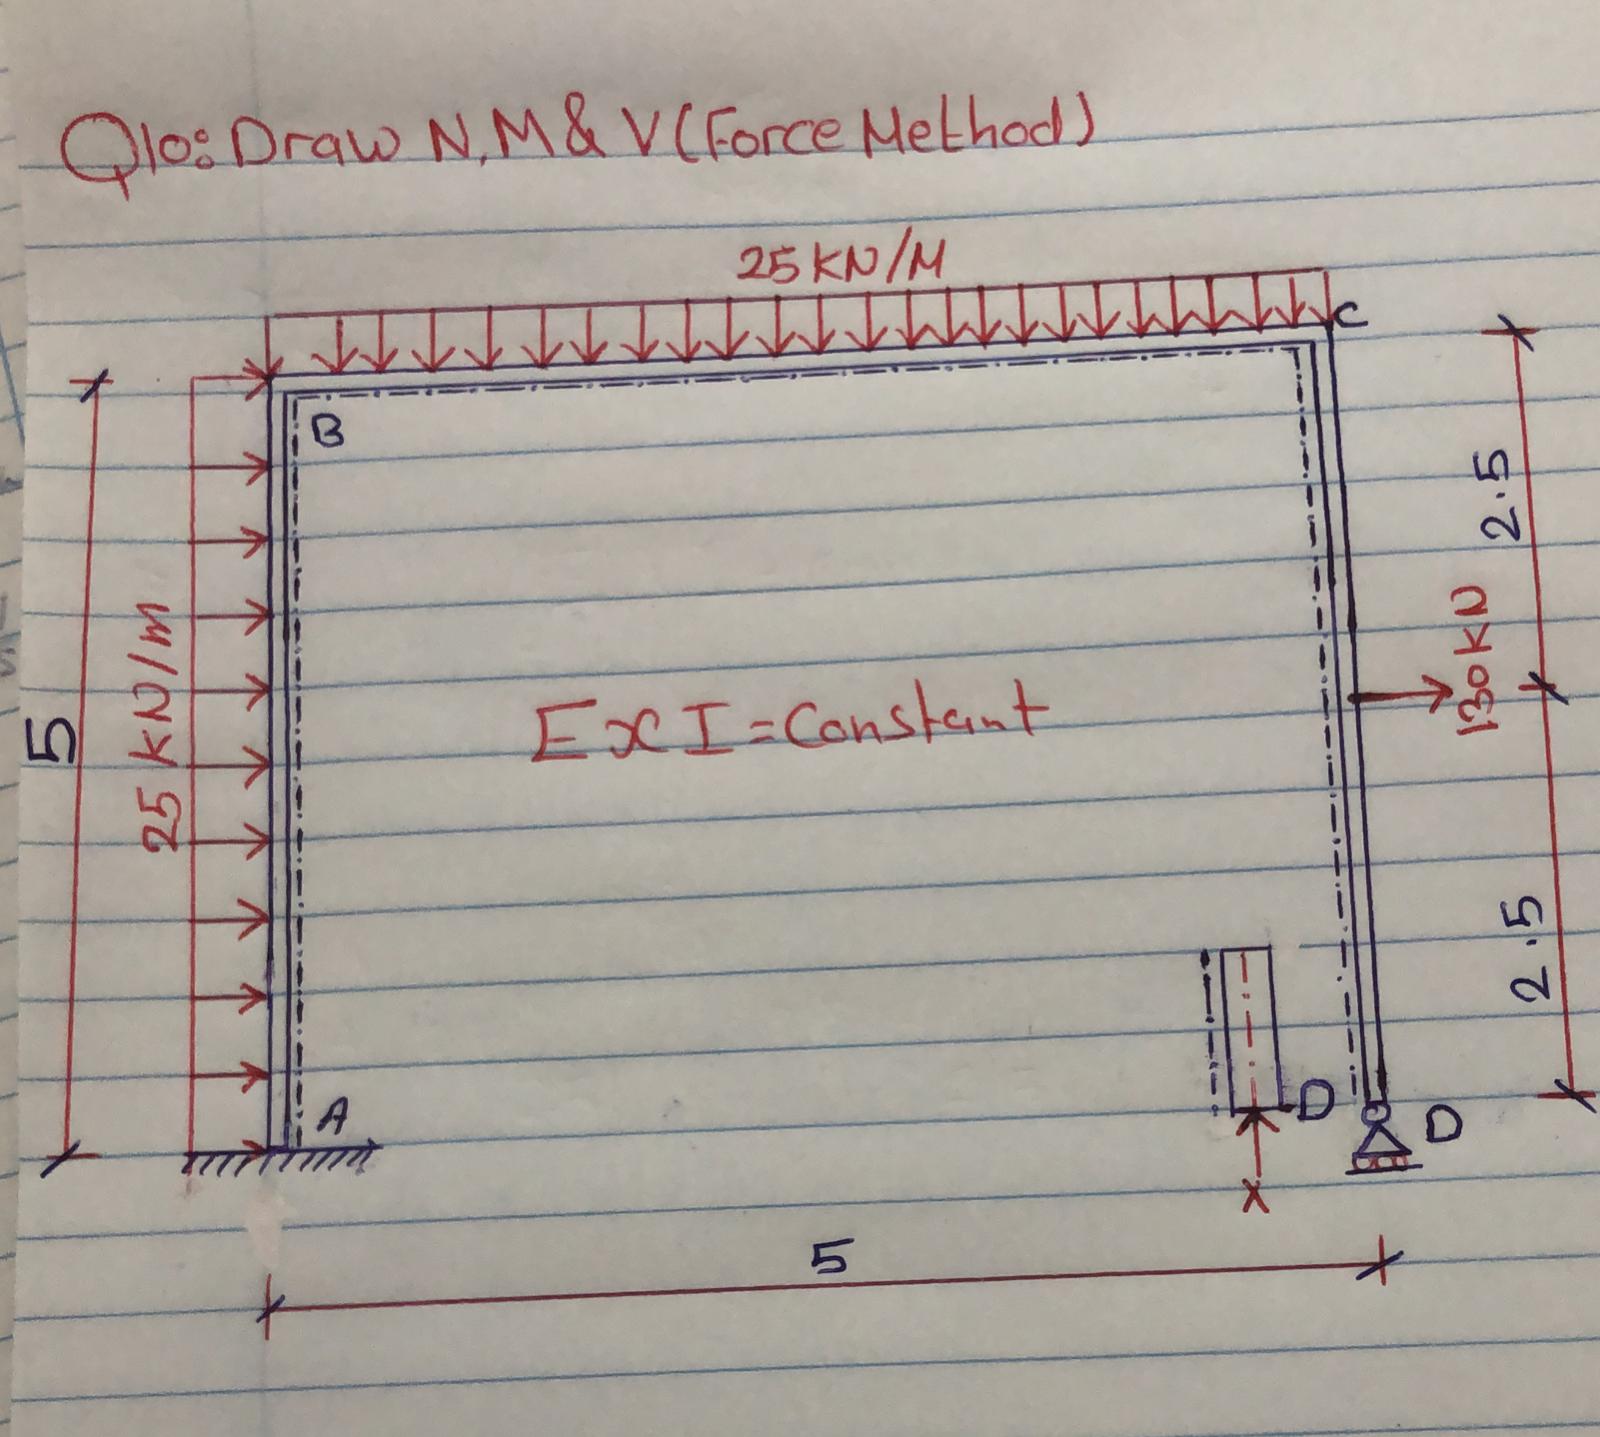 Q10: Draw N, M & V (Force Method)
25 KN/M
C
B
2.5
25 KN/m
5
E x I = Constant
130 KN
2.5
A
D
D
X
5